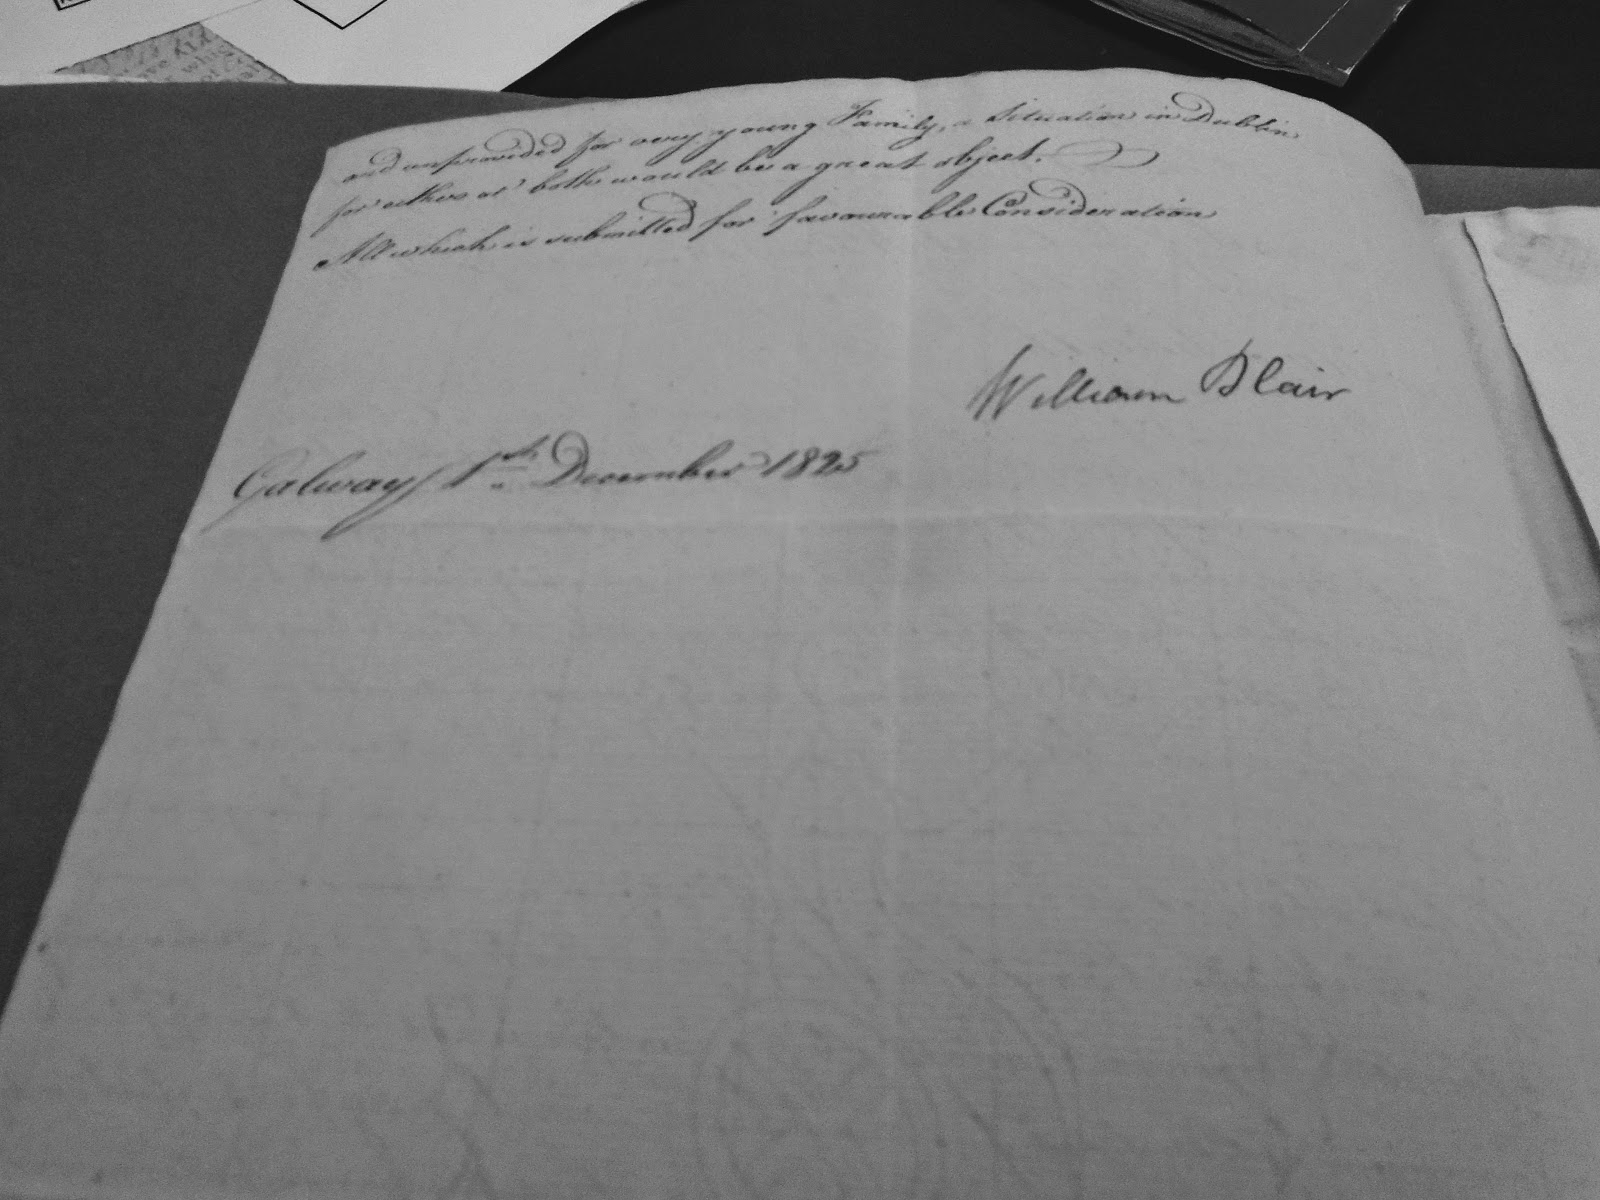 and unprovided for very young Family, a Situation in Dublin
for either or both would be a great object.
All which is submitted for favourable Consideration
William Blair
Galway 1st December 1825